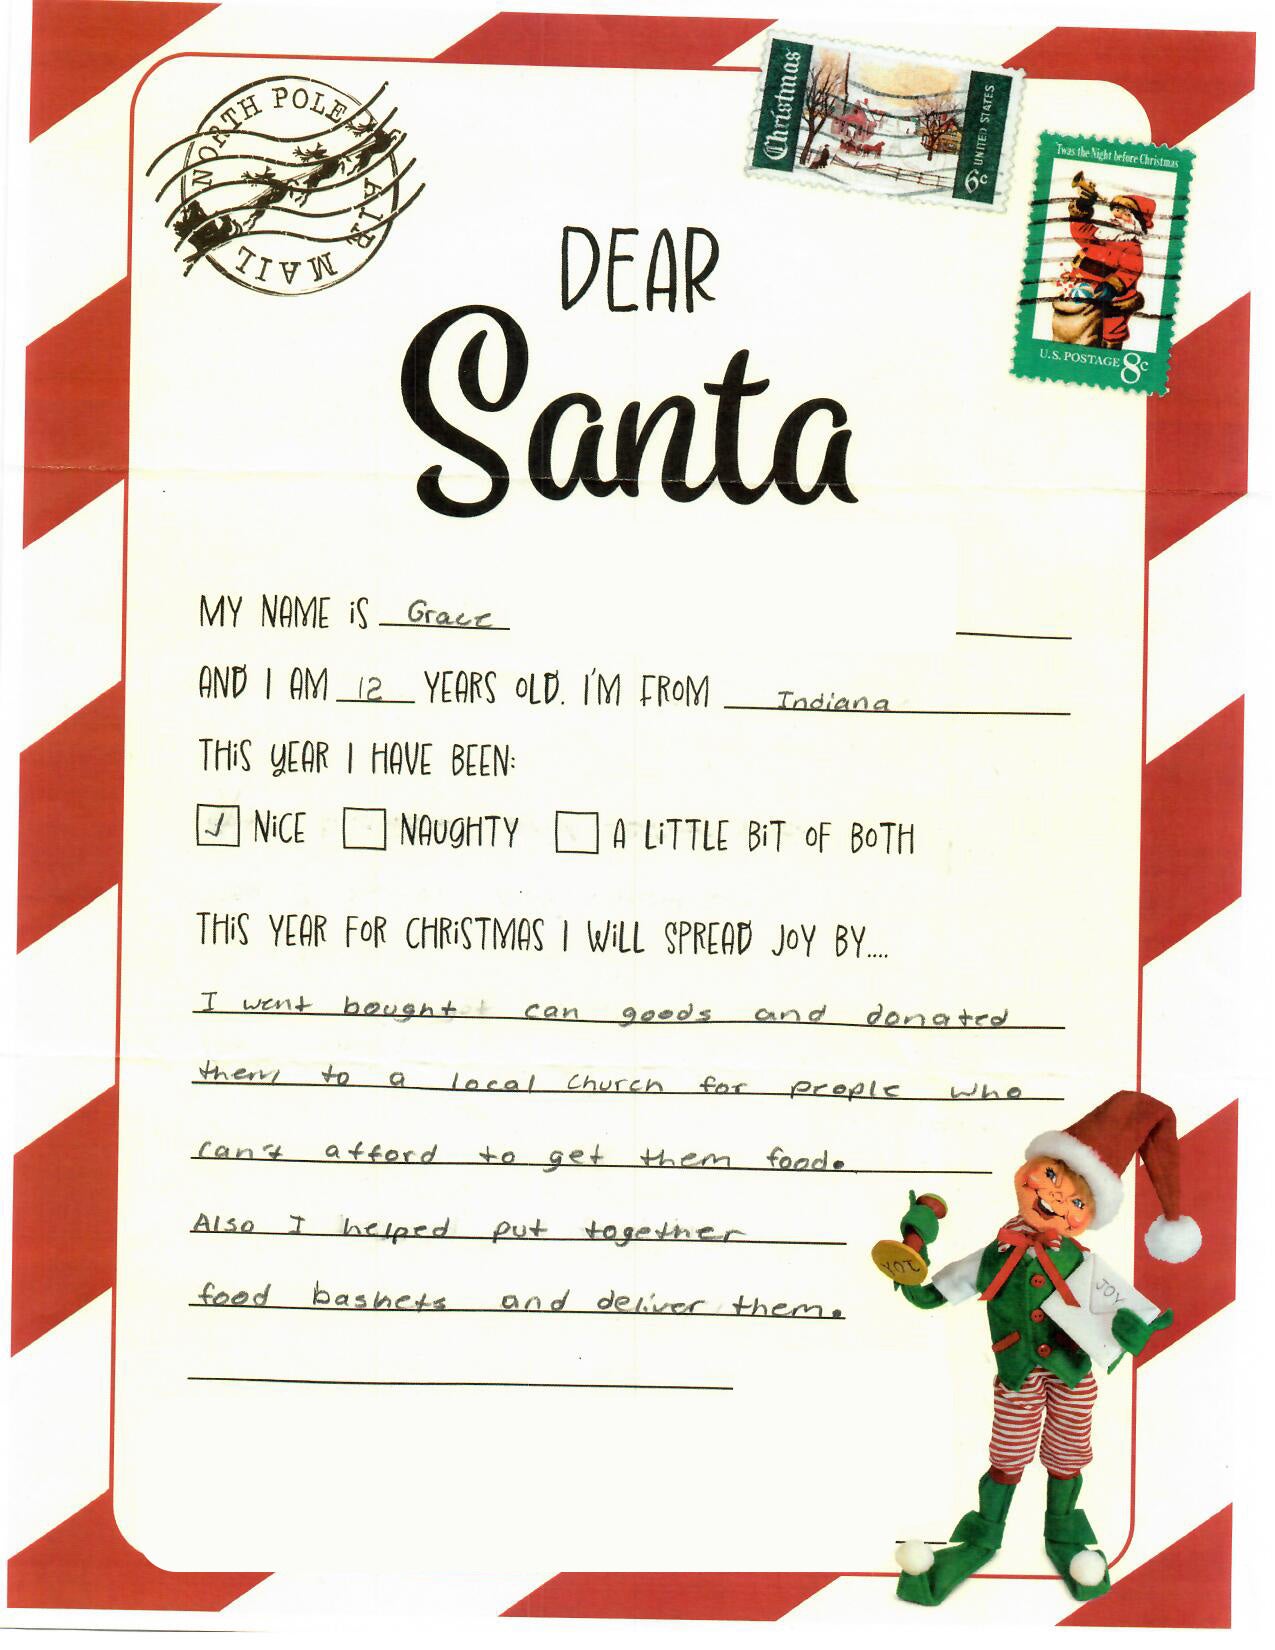 NORTH POLE
AIR MAIL
Christmas
6c UNITED STATES
'Twas the Night before Christmas
U.S. POSTAGE 8c
DEAR
Santa
MY NAME iS Grace
AND I AM 12 YEARS OLD. I'M FROM Indiana
THiS YEAR I HAVE BEEN:
NiCE NAUGHTY A LiTTLE BiT OF BOTH
THiS YEAR FOR CHRiSTMAS I WiLL SPREAD JOY BY....
I went bought can goods and donated
them to a local church for people who
can't afford to get them food.
Also I helped put together
food baskets and deliver them.
JOY
JOY